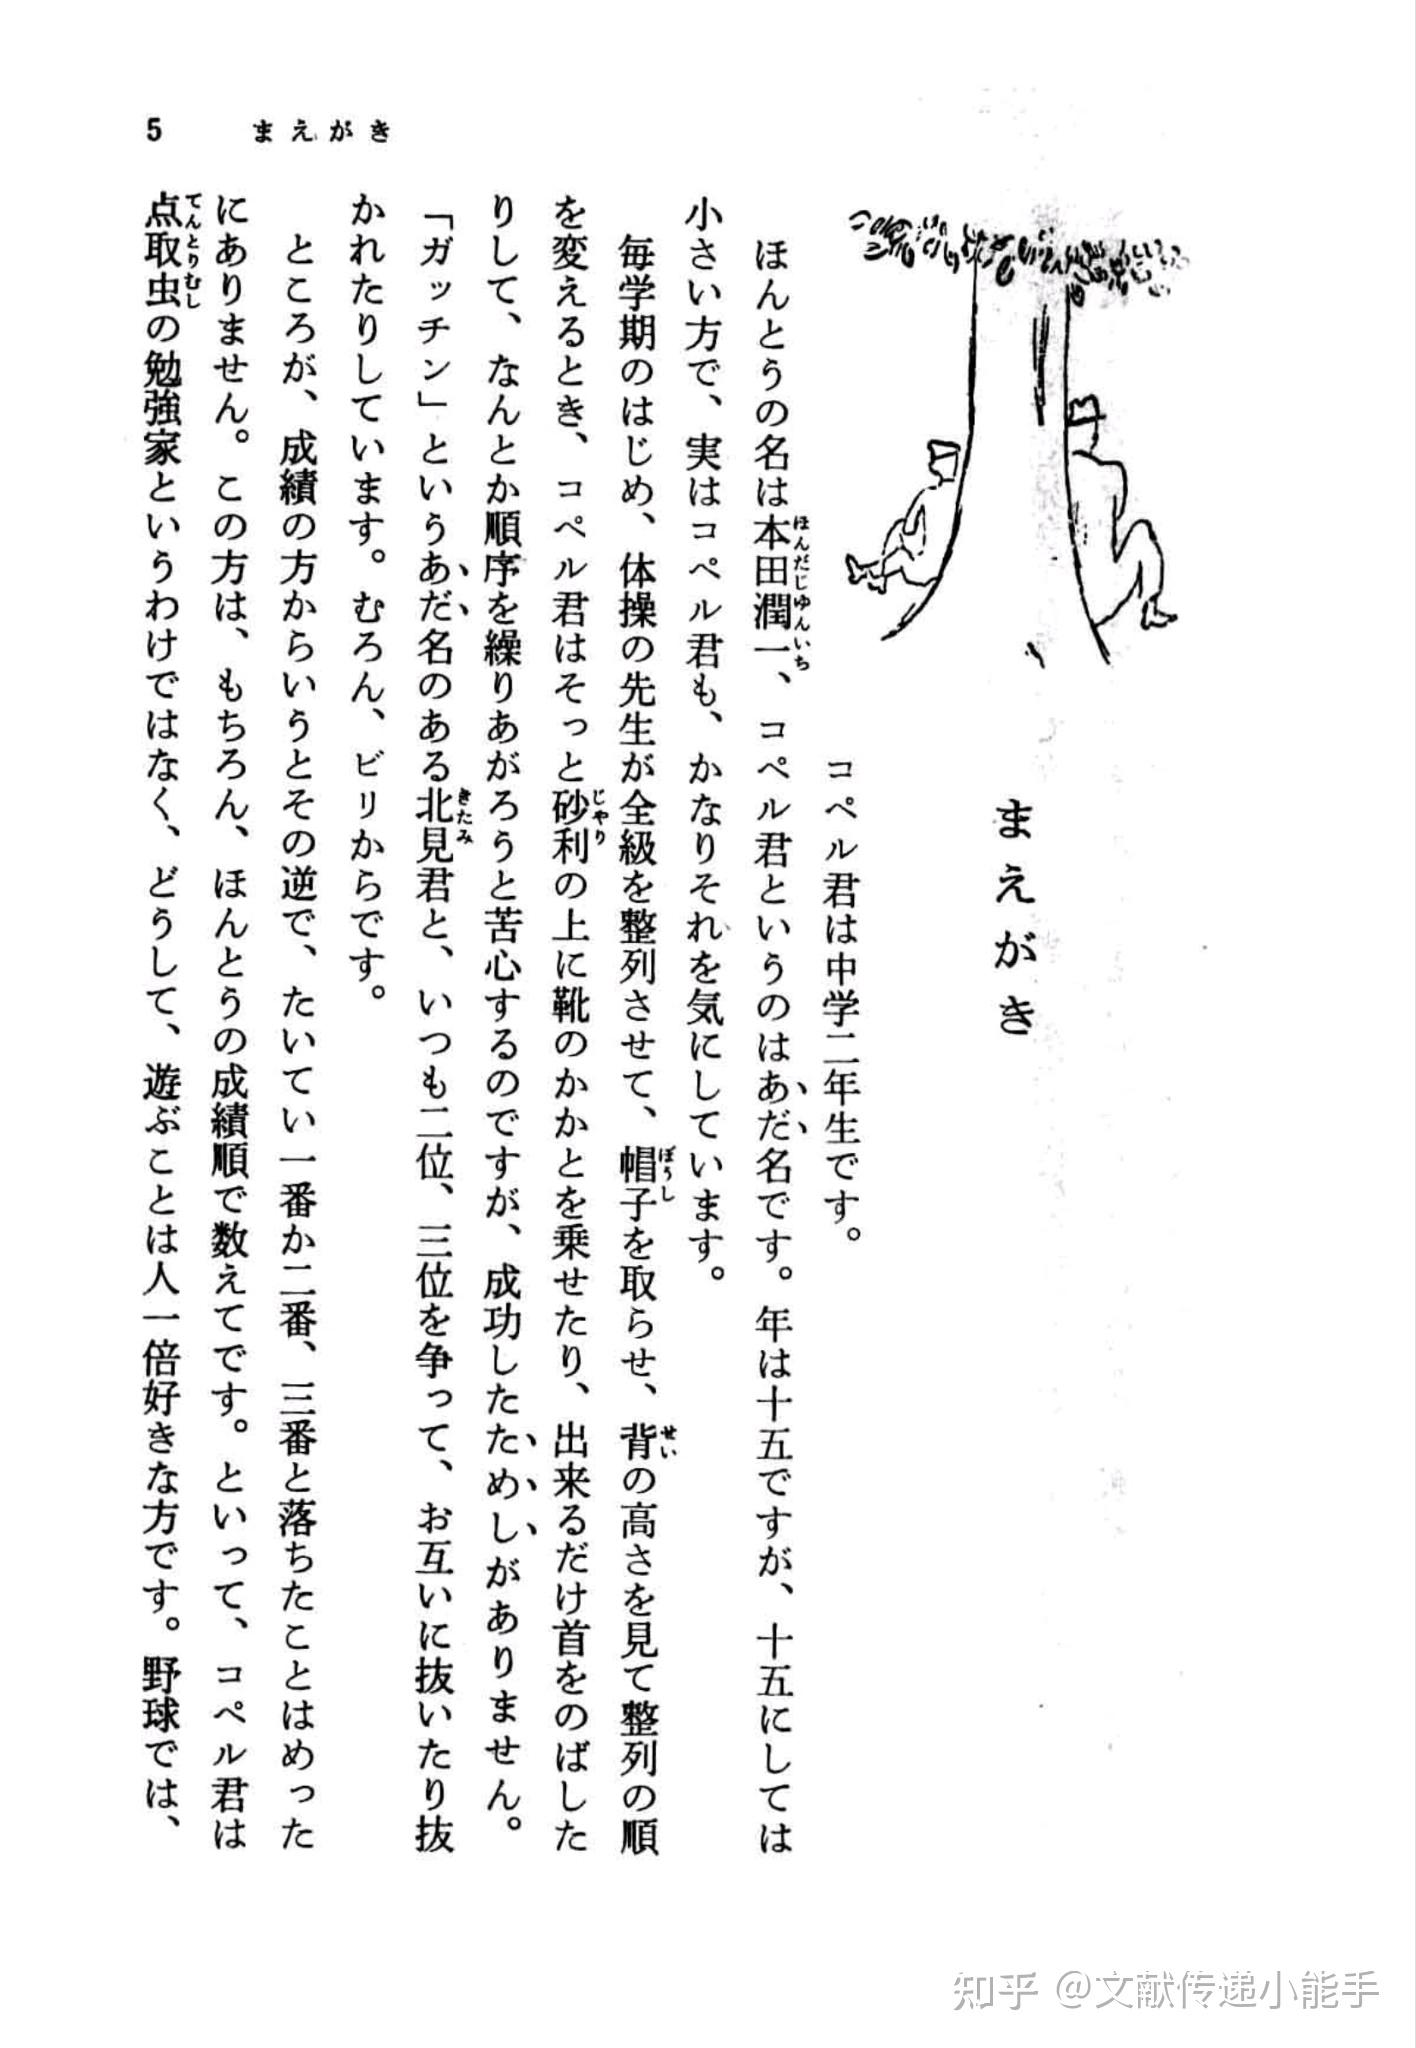 5 まえがき
まえがき
コペル君は中学二年生です。
ほんとうの名は本田潤一、コペル君というのはあだ名です。年は十五ですが、十五にしては
ほんだじゅんいち
小さい方で、実はコペル君も、かなりそれを気にしています。
毎学期のはじめ、体操の先生が全級を整列させて、帽子を取らせ、背の高さを見て整列の順
ぼうし
せい
を変えるとき、コペル君はそっと砂利の上に靴のかかとを乗せたり、出来るだけ首をのばした
じゃり
りして、なんとか順序を繰りあがろうと苦心するのですが、成功したためしがありません。
「ガッチン」というあだ名のある北見君と、いつも二位、三位を争って、お互いに抜いたり抜
きたみ
かれたりしています。むろん、ビリからです。
ところが、成績の方からいうとその逆で、たいてい一番か二番、三番と落ちたことはめった
にありません。この方は、もちろん、ほんとうの成績順で数えてです。といって、コペル君は
点取虫の勉強家というわけではなく、どうして、遊ぶことは人一倍好きな方です。野球では、
てんとりむし
知乎 @文献传递小能手